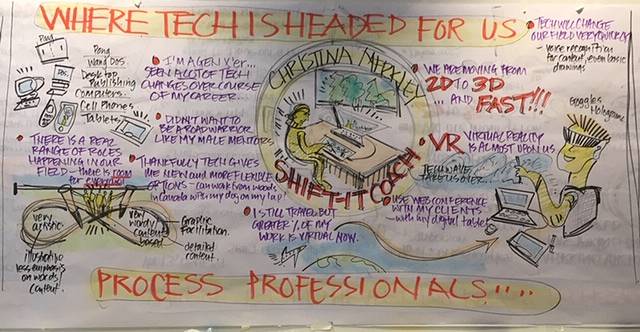 WHERE TECH IS HEADED FOR US
Pong
Wang Dos.
Desktop
Publishing
Computers
Cell Phones
Tablets
I'M A GEN Y'er...
SEEN A LOT OF TECH
CHANGES OVER COURSE
OF MY CAREER.
DIDN'T WANT TO
BE A ROAD WARRIOR
LIKE MY MALE MENTORS
THERE IS A REAL
RANGE OF ROLES
HAPPENING IN OUR
FIELD - there is room
for everyone!
THANKFULLY TECH GIVES
ME NEW and MORE FLEXIBLE
OPTIONS - can work from woods
in Canada with my dog on my lap!
very
artistic
very
wordy/
content
based
Graphic
Facilitation.
detailed
content.
illustrative
less emphasis
on words/
content.
I STILL TRAVEL BUT
GREATER % OF MY
WORK IS VIRTUAL NOW.
CHRISTINA MERKLEY
SHIFT-IT COACH
TECH WILL CHANGE
OUR FIELD VERY QUICKLY
- voice recognition
for content, even basic
drawings
WE ARE MOVING FROM
2D TO 3D
... AND FAST!!!
Goggles
Holograms
VR VIRTUAL REALITY
IS ALMOST UPON US
TECH WAVE
TAKES US OVER...
USE WEB CONFERENCE
WITH MY CLIENTS
- with my digital tablet
PROCESS PROFESSIONALS....